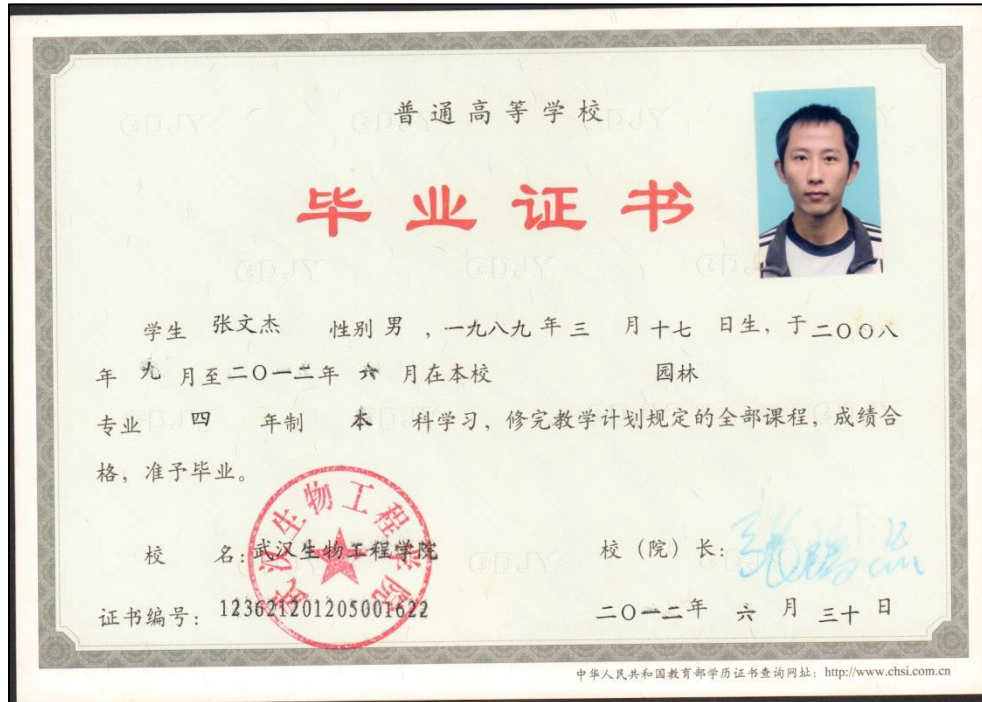 普通高等学校
毕业证书
学生 张文杰 性别 男 ，一九八九 年 三 月 十七 日生，于 二〇〇八
年 九 月至 二〇一二 年 六 月在本校 园林
专业 四 年制 本 科学习，修完教学计划规定的全部课程，成绩合
格，准予毕业。
武汉生物工程学院
校 名：武汉生物工程学院 校（院）长：
证书编号：123621201205001622 二〇一二 年 六 月 三十 日
中华人民共和国教育部学历证书查询网址：http://www.chsi.com.cn